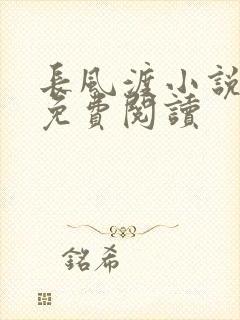 長風渡小說
免費閱讀
銘希